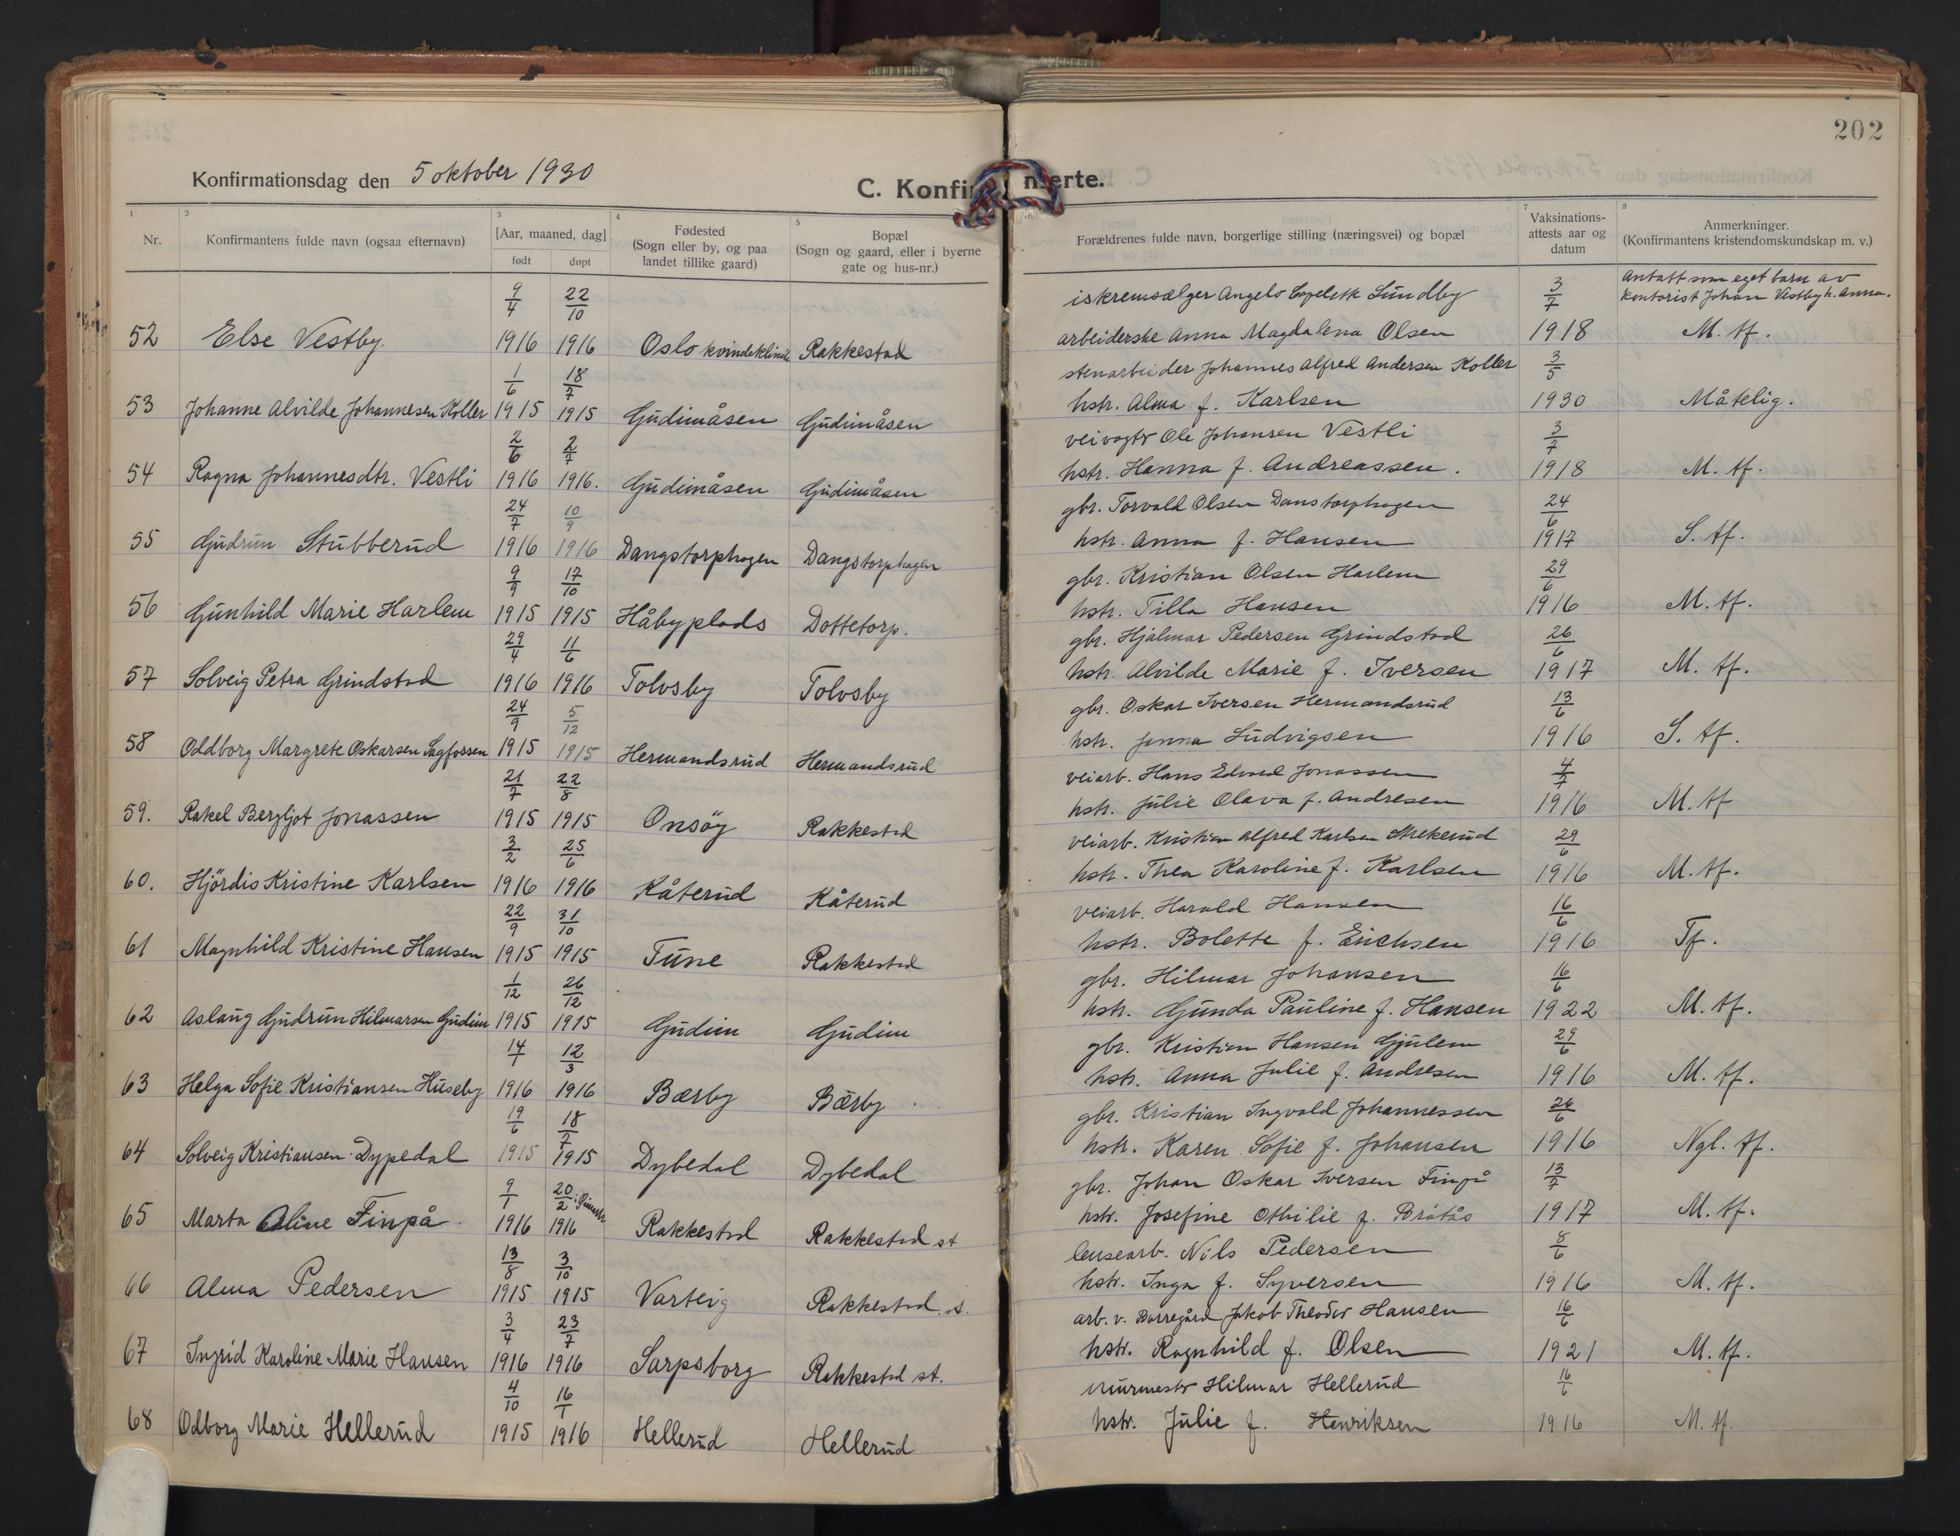 202
Konfirmationsdag den 5 oktober 1930
C. Konfirmerte.
Nr.
Konfirmantens fulde navn (ogsaa efternavn)
[Aar, maaned, dag]
født
døpt
Fødested
(Sogn eller by, og paa
landet tillike gaard)
Bopæl
(Sogn og gaard, eller i byerne
gate og hus-nr.)
Forældrenes fulde navn, borgerlige stilling (næringsvei) og bopæl
Vaksinations-
attests aar og
datum
Anmerkninger.
(Konfirmantens kristendomskundskap m. v.)
9/4 22/10 iskremsælger Angelo Lundby 3/7 Antatt som eget barn av
kontorist Johan Vestby h. Anna.
52 Else Vestby 1916 1916 Oslo kvindeklinik Rakkestad arbeiderske Anna Magdalena Olsen 1918 M. tf.
1/6 18/7 stenarbeider Johannes Alfred Andersen Koller 3/5
53 Johanne Alvilde Johannesen Koller 1915 1915 Gudimåsen Gudimåsen hstr. Alma f. Karlsen 1930 Måtelig.
2/6 2/7 veivogtr Ole Johansen Vestli 3/7
54 Ragna Johannesdtr. Vestli 1916 1916. Gudimåsen Gudimåsen hstr. Hanna f. Andreassen. 1918 M. tf.
24/7 10/9 gbr. Torvald Olsen Danstorphagen 24/6
55 Gudrun Stubberud 1916 1916 Dangstorphagen Dangstorphagen hstr. Anna f. Hansen 1917 S. tf.
9/9 17/10 gbr. Kristian Olsen Harlem 29/6
56 Gunhild Marie Harlem 1915 1915 Håbyplads Dottetorp. hstr. Tilla Hansen 1916 M. tf.
29/4 11/6 gbr. Hjalmar Pedersen Grindstad 26/6
57 Solveig Petra Grindstad 1916 1916 Tolvsby Tolvsby hstr. Alvilde Marie f. Iversen 1917 M. tf.
24/9 5/12 gbr. Oskar Iversen Hermandsrud 13/6
58 Oddborg Margrete Oskarsen Sagfossen 1915 1915 Hermandsrud Hermandsrud hstr. Janna Ludvigsen 1916 S. tf.
21/7 22/8 veiarb. Hans Edvard Jonassen 4/7
59. Rakel Bergljot Jonassen 1915 1915 Onsöy Rakkestad hstr. Julie Olava f. Andresen 1916 M. tf
3/2 25/6 veiarb. Kristian Alfred Karlsen Strekerud 29/6
60. Hjördis Kristine Karlsen 1916 1916 Kåterud Kåterud hstr. Thea Karoline f. Karlsen 1916 M. tf.
22/9 31/10 veiarb. Harald Hansen 16/6
61 Magnhild Kristine Hansen 1915 1915 Tune Rakkestad hstr. Bolette f. Erichsen 1916 Tf.
1/12 26/12 gbr. Hilmar Johansen 16/6
62 Aslaug Gudrun Hilmarsen Gudim 1915 1915 Gudim Gudim hstr. Gunda Pauline f. Hansen 1922 M. tf.
14/1 12/3 gbr. Kristian Hansen Gjulem 29/6
63 Helga Sofie Kristiansen Huseby 1916 1916 Bærby Bærby hstr. Anna Julie f. Andresen 1916 M. tf.
19/6 18/7 gbr. Kristian Ingvald Johannessen 26/6
64 Solveig Kristiansen Dypedal 1915 1915 Dybedal Dybedal hstr. Karen Sofie f. Johansen 1916 Ngl. tf.
9/1 20/2 gbr. Johan Oskar Iversen Finpå 13/7
65 Marta Oline Finpå 1916 1916 Rakkestad Rakkestad st hstr. Josefine Othilie f. Bråtås 1917 M. tf.
13/8 3/10 lensearb. Nils Pedersen 8/6
66 Alma Pedersen 1915 1915 Varteig Rakkestad st. hstr. Inga f. Syversen 1916 M. tf.
3/4 23/7 arb. v. Borregård Jakob Theodor Hansen 16/6
67 Ingrid Karoline Marie Hansen 1916 1916 Sarpsborg Rakkestad st. hstr. Ragnhild f. Olsen 1921 M. tf.
4/10 16/1 murmestr Hilmar Hellerud 16/6
68 Odborg Marie Hellerud 1915 1916 Hellerud Hellerud hstr. Julie f. Henriksen 1916 M. tf.